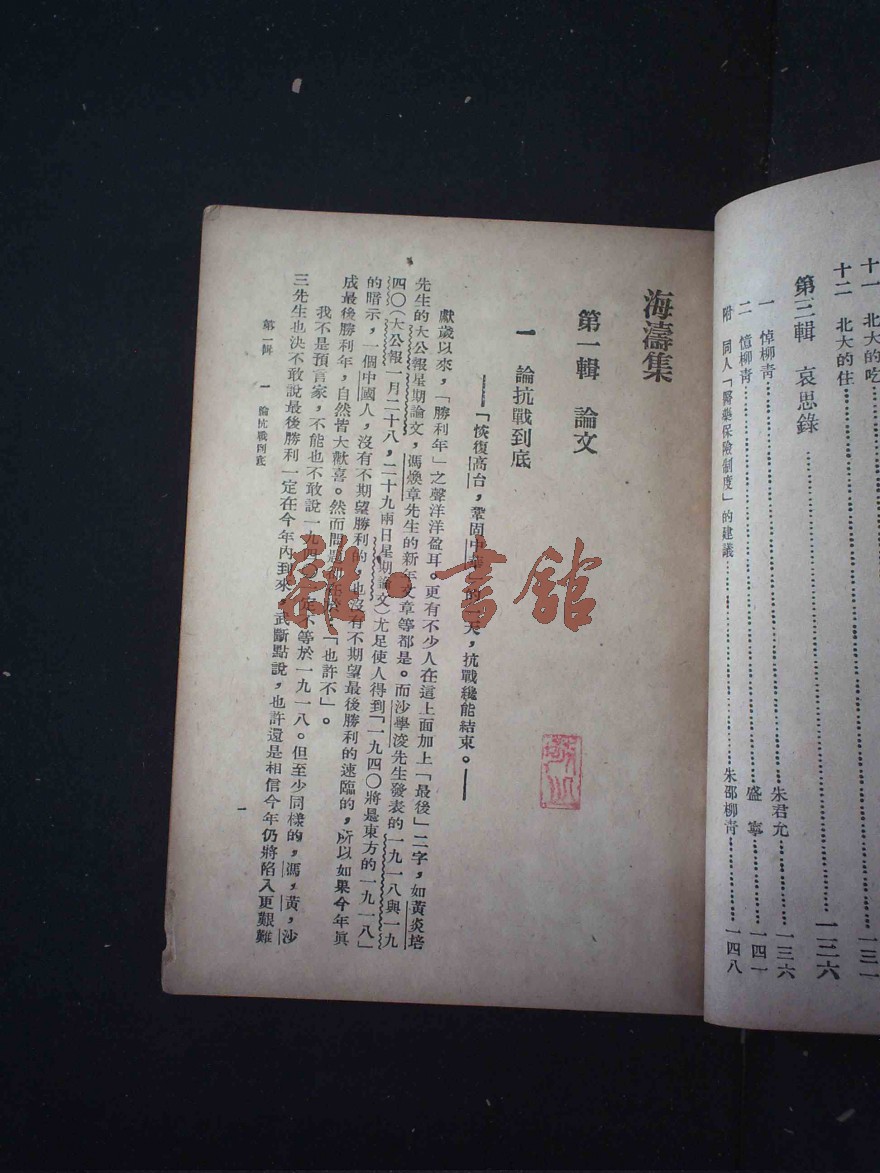 十一 北大的吃……一三一
十二 北大的住
第三輯 哀思錄……一三六
一 悼柳青……朱君允……一三六
二 憶柳青……盛 寧……一四一
附 同人「醫藥保險制度」的建議……朱邵柳青……一四八
海濤集
第一輯 論文
一 論抗戰到底
——「恢復高台，鞏固中 的 天，抗戰纔能結束。——
獻歲以來，「勝利年」之聲洋洋盈耳。更有不少人在這上面加上「最後」二字，如黃炎培
先生的大公報星期論文，馮煥章先生的新年文章等都是。而沙學浚先生發表的一九一八與一九
四〇（大公報一月二十八，二十九兩日星期論文）尤足使人得到「一九四〇將是東方的一九一八」
的暗示，一個中國人，沒有不期望勝利的，也沒有不期望最後勝利的速臨的，所以如果今年眞
成最後勝利年，自然皆大歡喜。然而問題 「也許不」。
我不是預言家，不能也不敢說一九四〇一定不等於一九一八。但至少同樣的，馮，黃，沙
三先生也決不敢說最後勝利一定在今年內到來，武斷點說，也許還是相信今年仍將陷入更艱難
第一輯 一 論抗戰到底
一
雜·書館